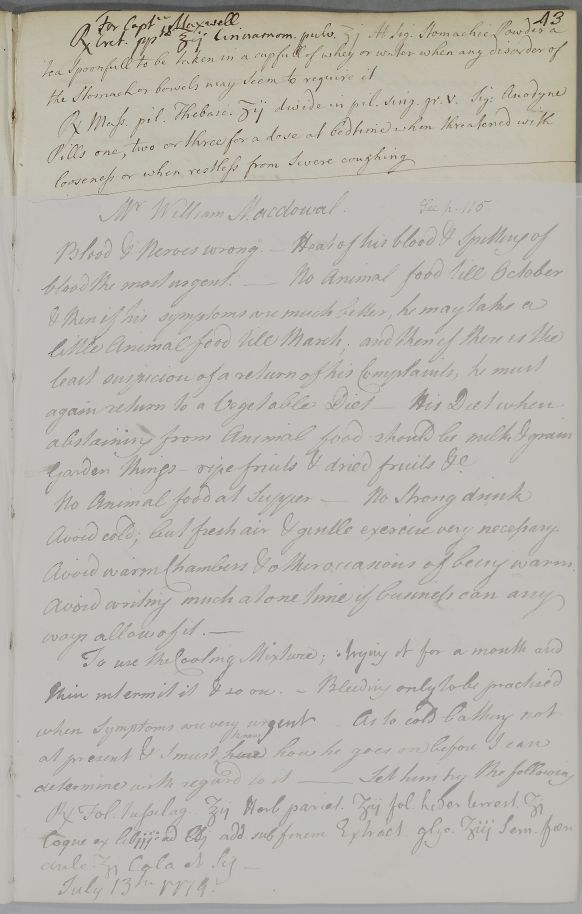 43
For Capt.ⁿ Maxwell
℞ Cret. ppᵗ ℥ij Cinnamom. pulv. ʒj M Sig. Stomachic Powder a
tea spoonfull to be taken in a cupfull of whey or water when any disorder of
the Stomach or bowels may seem to require it
℞ Mass. pil. Thebaic. ʒij divide in pil. sing. gr. v. Sig: Anodyne
Pills one, two or three for a dose at bedtime when threatened with
looseness or when restless from severe coughing
Mr. William Macdowal. See p. 115
Blood & Nerves wrong. — Heat of his blood & Spitting of
blood the most urgent. — No Animal food till October
& then if his symptoms are much better, he may take a
little Animal food till March. and then if there is the
least suspicion of a return of his Complaints, he must
again return to a Vegetable Diet — His Diet when
abstaining from Animal food should be milk & grain
Garden things — ripe fruits & dried fruits &c
No Animal food at Supper — No Strong drink
Avoid cold; but fresh air & gentle exercise very necessary.
Avoid warm Chambers & other occasions of being warm.
Avoid writing much at one time if business can any
ways allow of it. —
To use the Cooling Mixture; trying it for a month and
then intermit it & so on. — Bleeding only to be practised
when Symptoms are very urgent — As to cold bathing not
at present & I must know how he goes on before I can
determine with regard to it — Let him try the following
℞ Fol. tussilag. ℥ij Herb pariet. ℥ij fol. heder terrest. ℥j
Coque ex libiij ad lbij add. sub finem Extract. glyc. ʒiij Sem. fœn
culi ʒj Cola et Sig —
July 13th